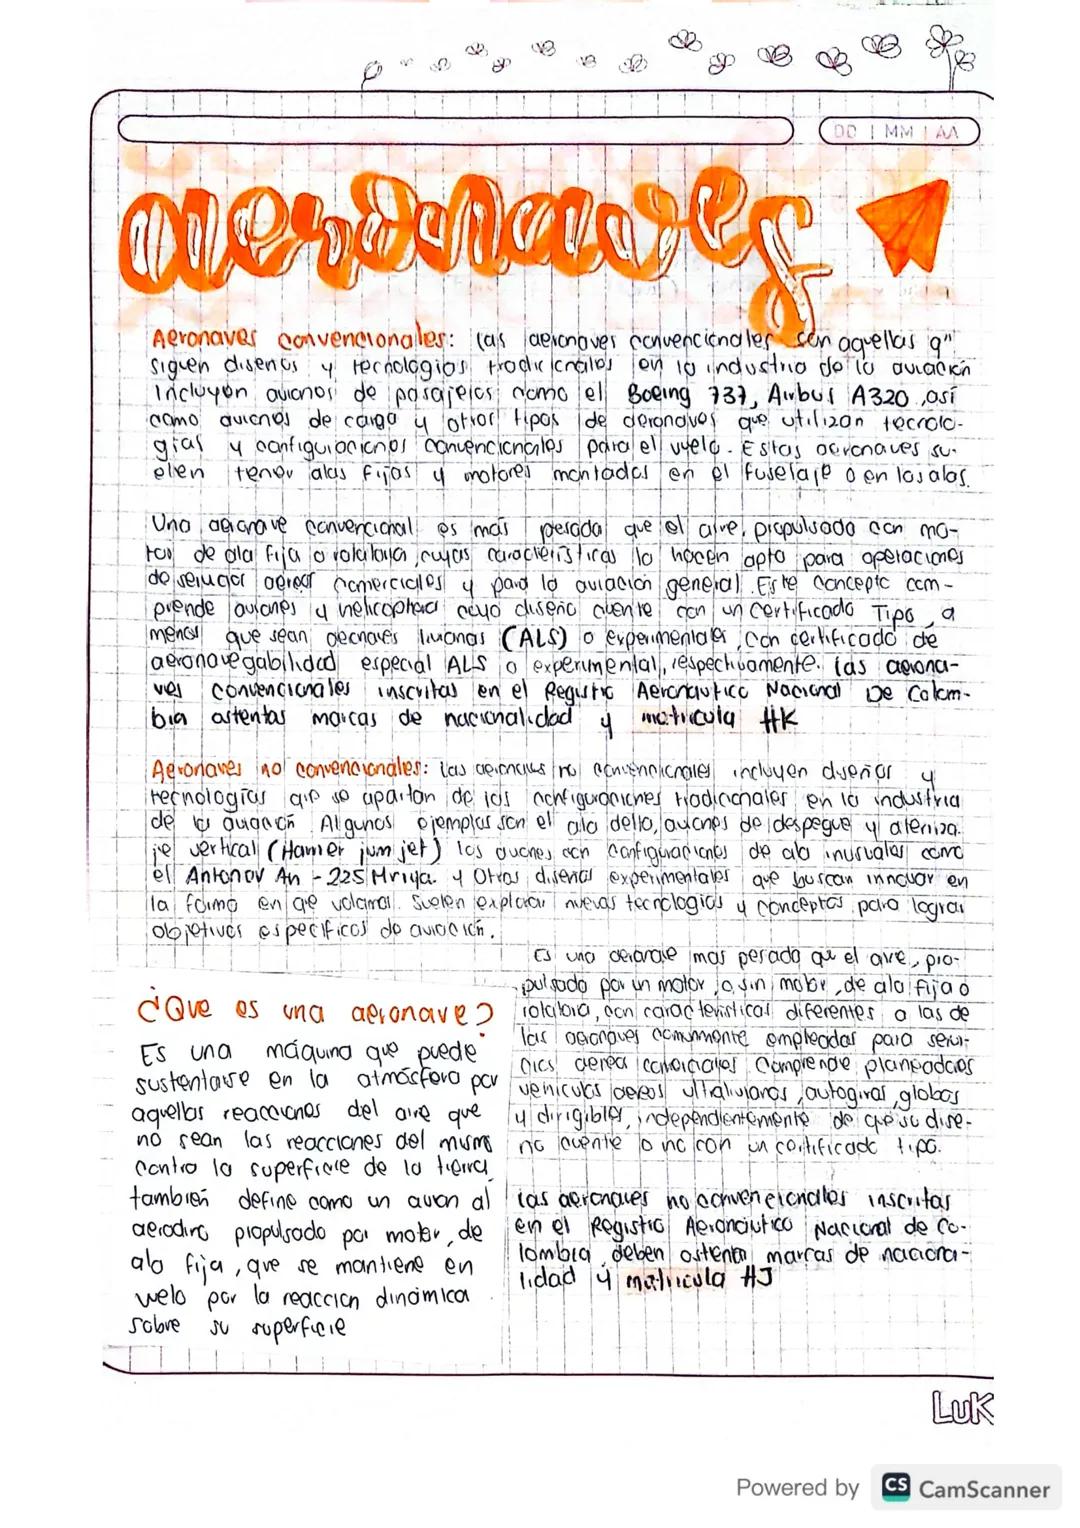 DD | MM | AA
aeronaves
Aeronaves convencionales: las aeronaves convencionales son aquellas q"
siguen diseños y tecnologías tradicionales en la industria de la aviación
Incluyen aviones de pasajeros como el Boeing 737, Airbus A320, así
como aviones de carga y otros tipos de aeronaves que utilizan tecnolo-
gias y configuraciones convencionales para el vuelo. Estas aeronaves su-
elen tener alas fijas y motores montados en el fuselaje o en las alas.
Una aeronave convencional es más pesada que el aire, propulsada con mo-
tor de ala fija o rotatoria, cuyas características la hacen apta para operaciones
de comerciales y para la aviación general. Este concepto com-
prende aviones y cuyo diseño cuente con un certificado Tipo, a
menos que sean livianas (ALS) o experimentales, con certificado de
aeronavegabilidad especial ALS o experimental, respectivamente. Las aerona-
ves convencionales inscritas en el Registro Aeronáutico Nacional De Colom-
bia ostentas marcas de nacionalidad y matricula HK
Aeronaves no convencionales: Las aeronaves no convencionales incluyen diseños y
tecnologías que se apartan de las configuraciones tradicionales en la industria
de la aviación. Algunos ejemplos son el ala delta, aviones de despegue y aterriza-
je vertical (Harrier jum jet) los aviones con configuraciones de ala inusuales como
el Antonov An - 225 Mriya. y Otros diseños experimentales que buscan innovar en
la forma en que volamos. Suelen explorar nuevas tecnologías y conceptos para lograr
objetivos especificos de aviación.
¿Que es una aeronave?
Es una máquina que puede
sustentarse en la atmósfera por
aquellas reacciones del aire que
no sean las reacciones del mismo
contra la superficie de la tierra,
también define como un avion al
aerodino propulsado por motor, de
ala fija, que se mantiene en
vuelo por la reaccion dinámica
sobre su superficie
Es una aeronave mas pesada que el aire, pro-
pulsada por un motor, o sin motor, de ala fija o
rotatoria, con características diferentes a las de
las aeronaves comunmente empleadas para servi-
cios aereos comerciales. Comprende planeadores
vehiculos aereos ultralivianos, autogiros, globos
y dirigibles, independientemente de que su dise-
ño cuente o no con un certificado tipo.
Las aeronaves no convencionales inscritas
en el Registro Aeronáutico Nacional de Co-
lombia, deben ostentar marcas de naciona-
lidad y matricula HJ
LUK
Powered by CS CamScanner